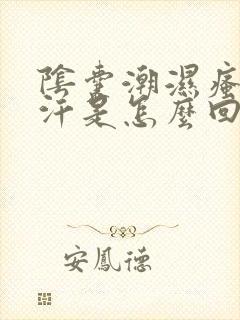 陰囊潮濕瘙
汗是怎麼回
安鳳德